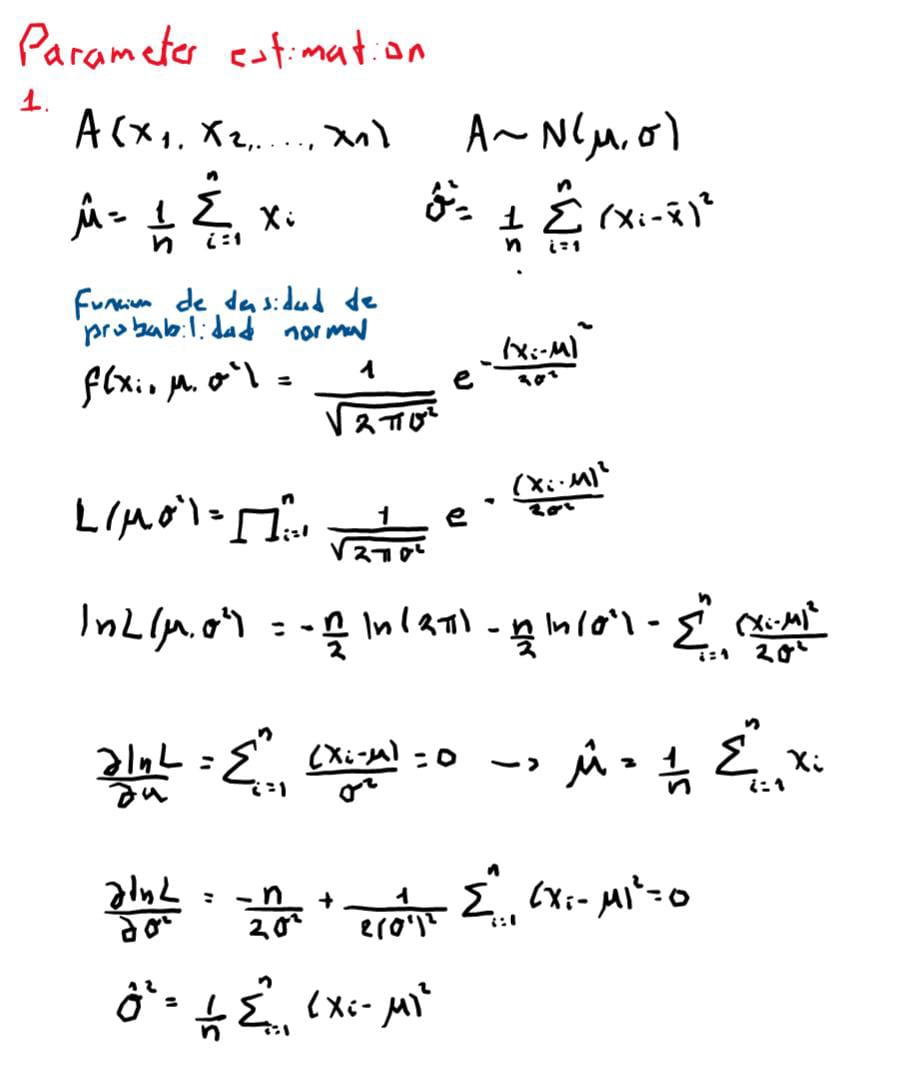 Parameter estimation
1.
A(x₁, x₂,....., xn) A ~ N(μ, σ)
μ̂ = 1/n Σⁿᵢ₌₁ xᵢ σ̂² = 1/n Σⁿᵢ₌₁ (xᵢ - x̄)²
Función de densidad de
probabilidad normal
f(xᵢ, μ, σ²) = 1/√(2πσ²) e^(-(xᵢ-μ)²/2σ²)
L(μ, σ²) = ∏ⁿᵢ₌₁ 1/√(2πσ²) e^(-(xᵢ-μ)²/2σ²)
ln L(μ, σ²) = -n/2 ln(2π) - n/2 ln(σ²) - Σⁿᵢ₌₁ (xᵢ-μ)²/2σ²
∂lnL/∂μ = Σⁿᵢ₌₁ (xᵢ-μ)/σ² = 0 → μ̂ = 1/n Σⁿᵢ₌₁ xᵢ
∂lnL/∂σ² = -n/2σ² + 1/2(σ²)² Σⁿᵢ₌₁ (xᵢ-μ)² = 0
σ̂² = 1/n Σⁿᵢ₌₁ (xᵢ-μ)²